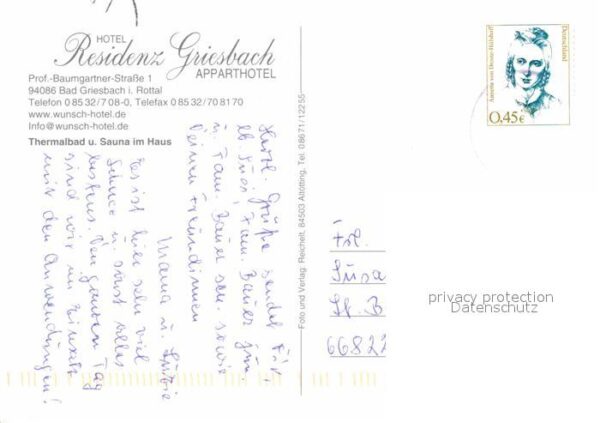 HOTEL
Residenz Griesbach
APPARTHOTEL
Prof.-Baumgartner-Straße 1
94086 Bad Griesbach i. Rottal
Telefon 0 85 32/7 08-0, Telefax 0 85 32/70 81 70
www.wunsch-hotel.de
Info@wunsch-hotel.de
Thermalbad u. Sauna im Haus
Herzl. Grüße sendet Dir
lb. Susi, Fam. Bauer jun.
u. Fam. Bauer sen. sowie
Deinen Freundinnen
Mama u.
Es ist hier sehr viel
Schnee u. sonst alles
bestens. Den ganzen Tag
sind wir im Einsatz
mit den Anwendungen!
Foto und Verlag: Reichelt, 84503 Altötting, Tel. 08671/12255
Annette von Droste-Hülshoff
Deutschland
0,45€
Frl.
Susa
St. B
66822
privacy protection
Datenschutz